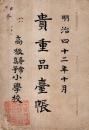 明治四十二年十月
貴重品臺帳
高根尋常小學校